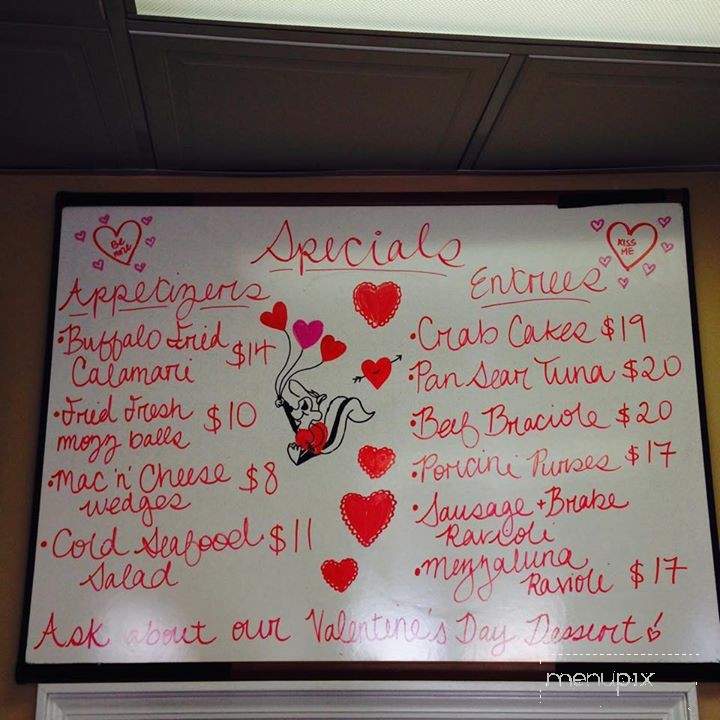 Be mine
Specials
KISS
ME
Appetizers
•Buffalo Fried
Calamari $14
•Fried Fresh
mozz balls $10
•Mac 'n' Cheese
wedges $8
•Cold Seafood
Salad $11
Entrees
•Crab Cakes $19
•Pan Sear Tuna $20
•Beef Braciole $20
•Poricini Purses $17
•Sausage + Brabe
Ravioli
•Mezzaluna
Ravioli $17
Ask about our Valentine's Day Dessert!
menupix